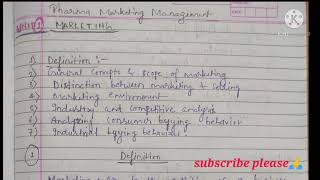 Pharma Marketing Management
UNIT 1
MARKETING
1) Definition :-
2) General concepts & scope of marketing
3) Distinction between marketing & selling
4) Marketing environment
5) Industry and competitive analysis
6) Analyzing consumer buying behavior
7) Industrial buying behaviour
1
Definition
subscribe please🙏